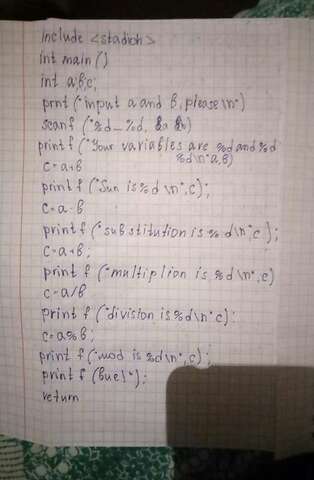 include <stadioh>
int main()
int a,b,c;
prnt ("input a and b, please \n")
scanf ("%d_%d, &a &b)
printf ("Your variables are %d and %d
%d \n" a, b)
c=a+b
printf ("Sun is %d \n", c);
c=a-b
printf ("substitution is % d \n" c );
c=a*b;
print f ("multiplion is %d \n", c)
c=a/b
printf ("division is %d \n" c);
c=a%b;
print f ("mod is %d \n", c);
print f (buel");
return